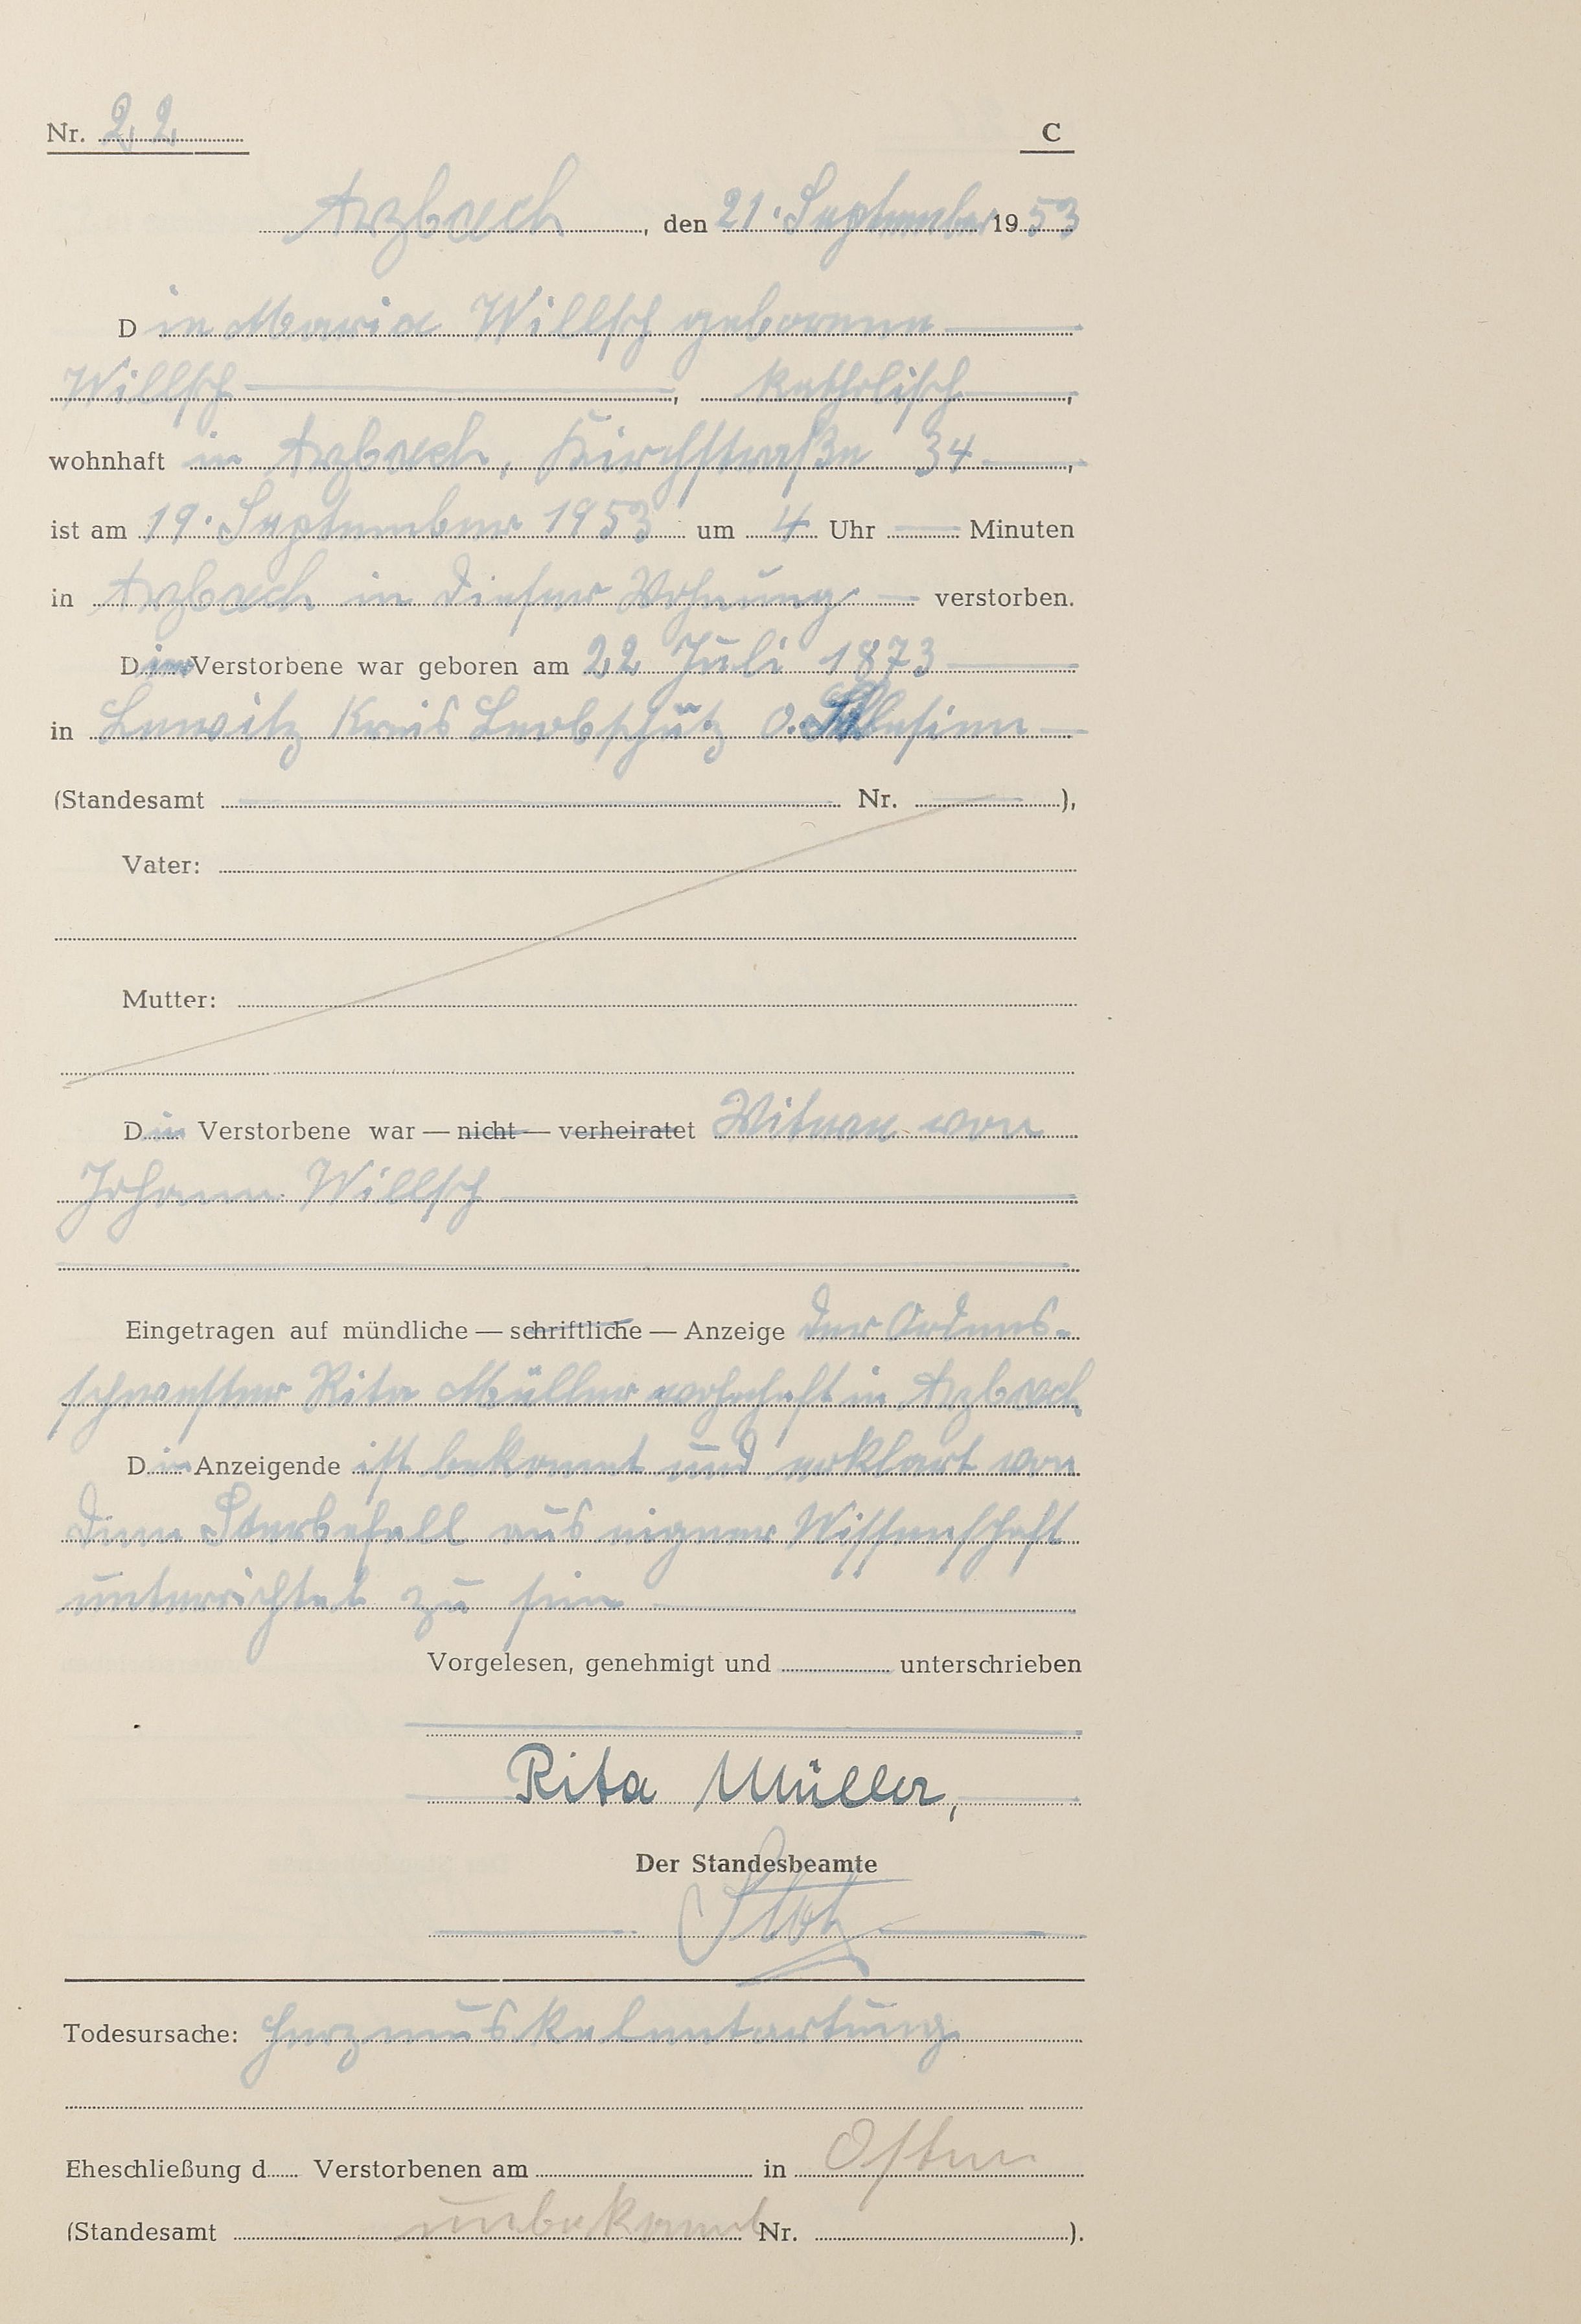 Nr. 22
C
Arzbach, den 21. September 1953
Die Maria Willsch geborene
Willsch, katholisch,
wohnhaft in Arzbach, Kirchstraße 34,
ist am 19. September 1953 um 4 Uhr Minuten
in Arzbach in dieser Wohnung verstorben.
Die Verstorbene war geboren am 22 Juli 1873
in Kreis Leobschütz O.
(Standesamt Nr. ),
Vater:
Mutter:
Die Verstorbene war — nicht — verheiratet Witwe von
Johann Willsch
Eingetragen auf mündliche — schriftliche — Anzeige der Ordens-
schwester Rita Müller wohnhaft in Arzbach
Die Anzeigende ist bekannt und erklärt von
dem Sterbefall aus eigner Wissenschaft
unterrichtet zu sein
Vorgelesen, genehmigt und unterschrieben
Rita Müller,
Der Standesbeamte
Todesursache: Herzmuskelentartung
Eheschließung d Verstorbenen am in Osten
(Standesamt unbekannt Nr. ).